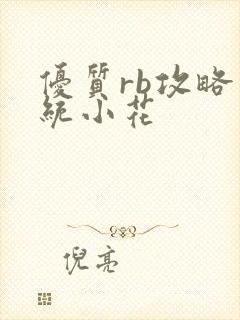 優質rb攻略
統小花
倪亮